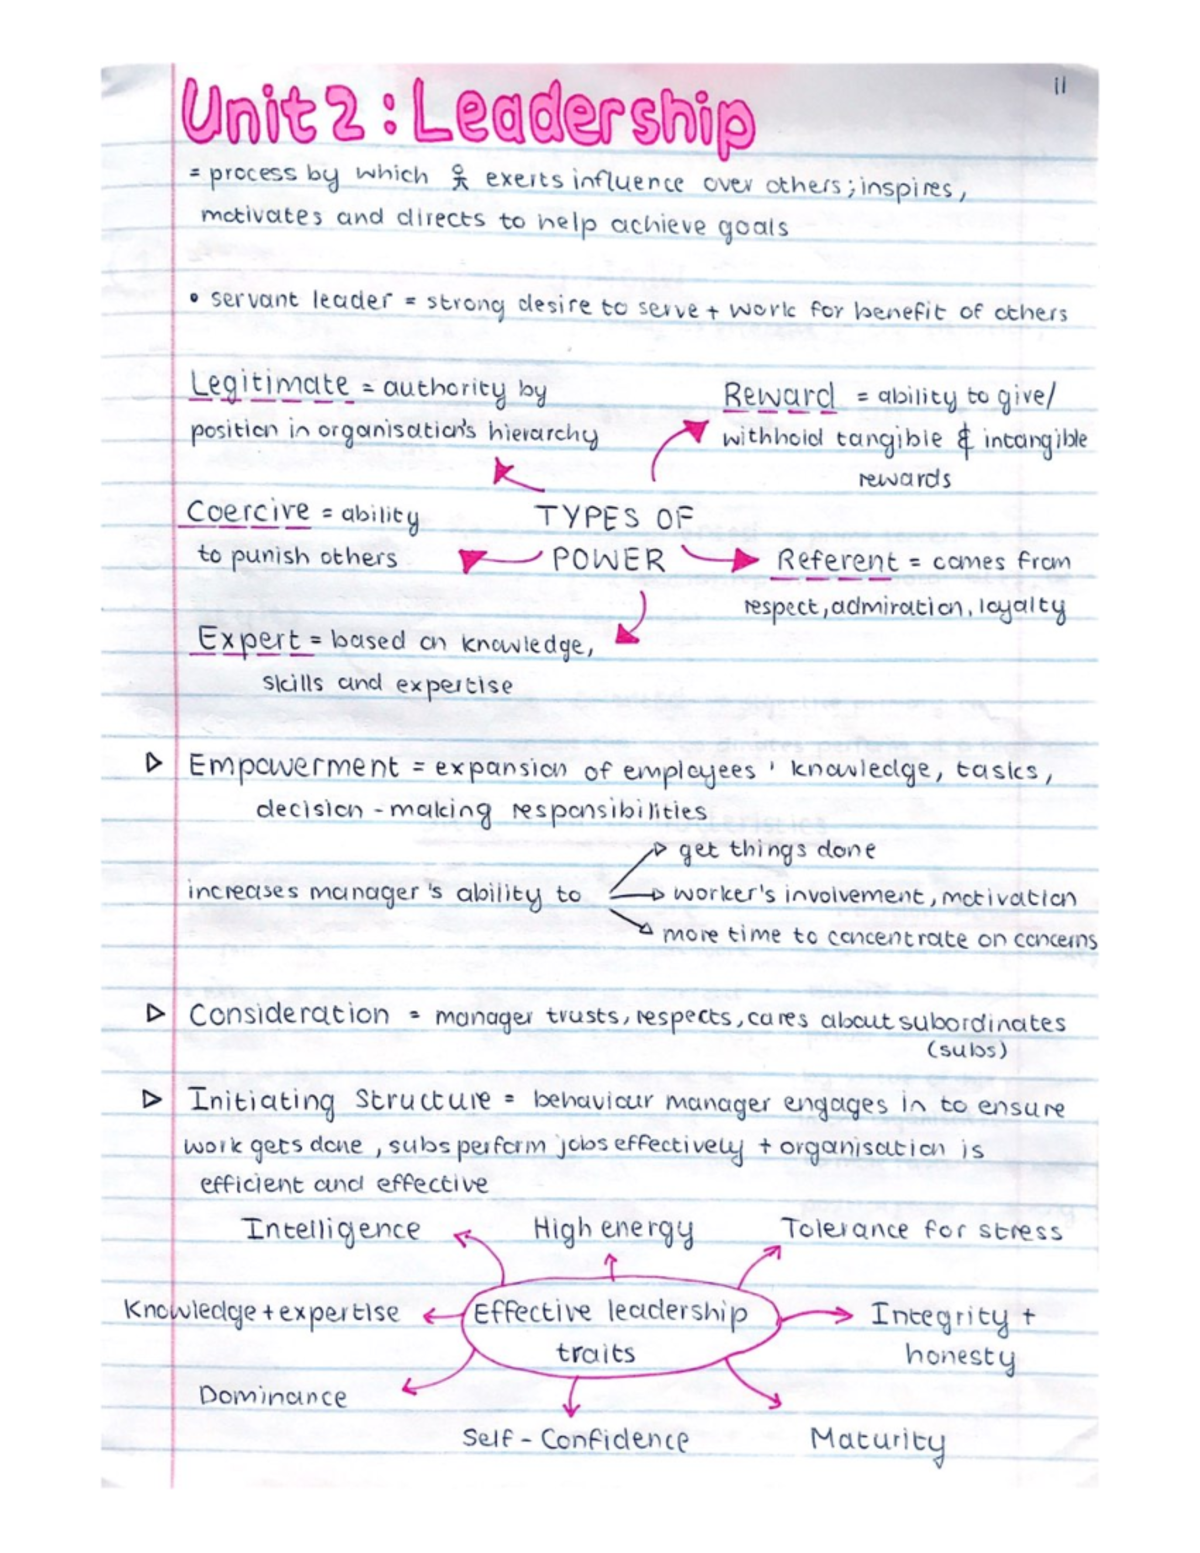 11
Unit 2 : Leadership
= process by which exerts influence over others; inspires,
motivates and directs to help achieve goals
• servant leader = strong desire to serve + work for benefit of others
Legitimate = authority by
position in organisation's hierarchy
Reward = ability to give/
withhold tangible & intangible
rewards
Coercive = ability
to punish others
TYPES OF
POWER
Referent = comes from
respect, admiration, loyalty
Expert = based on knowledge,
skills and expertise
Empowerment = expansion of employees' knowledge, tasks,
decision - making responsibilities
increases manager's ability to
get things done
worker's involvement, motivation
more time to concentrate on concerns
Consideration = manager trusts, respects, cares about subordinates
(subs)
Initiating Structure = behaviour manager engages in to ensure
work gets done, subs perform jobs effectively + organisation is
efficient and effective
Intelligence
High energy
Tolerance for stress
Knowledge + expertise
Effective leadership
traits
Integrity +
honesty
Dominance
Self - Confidence
Maturity